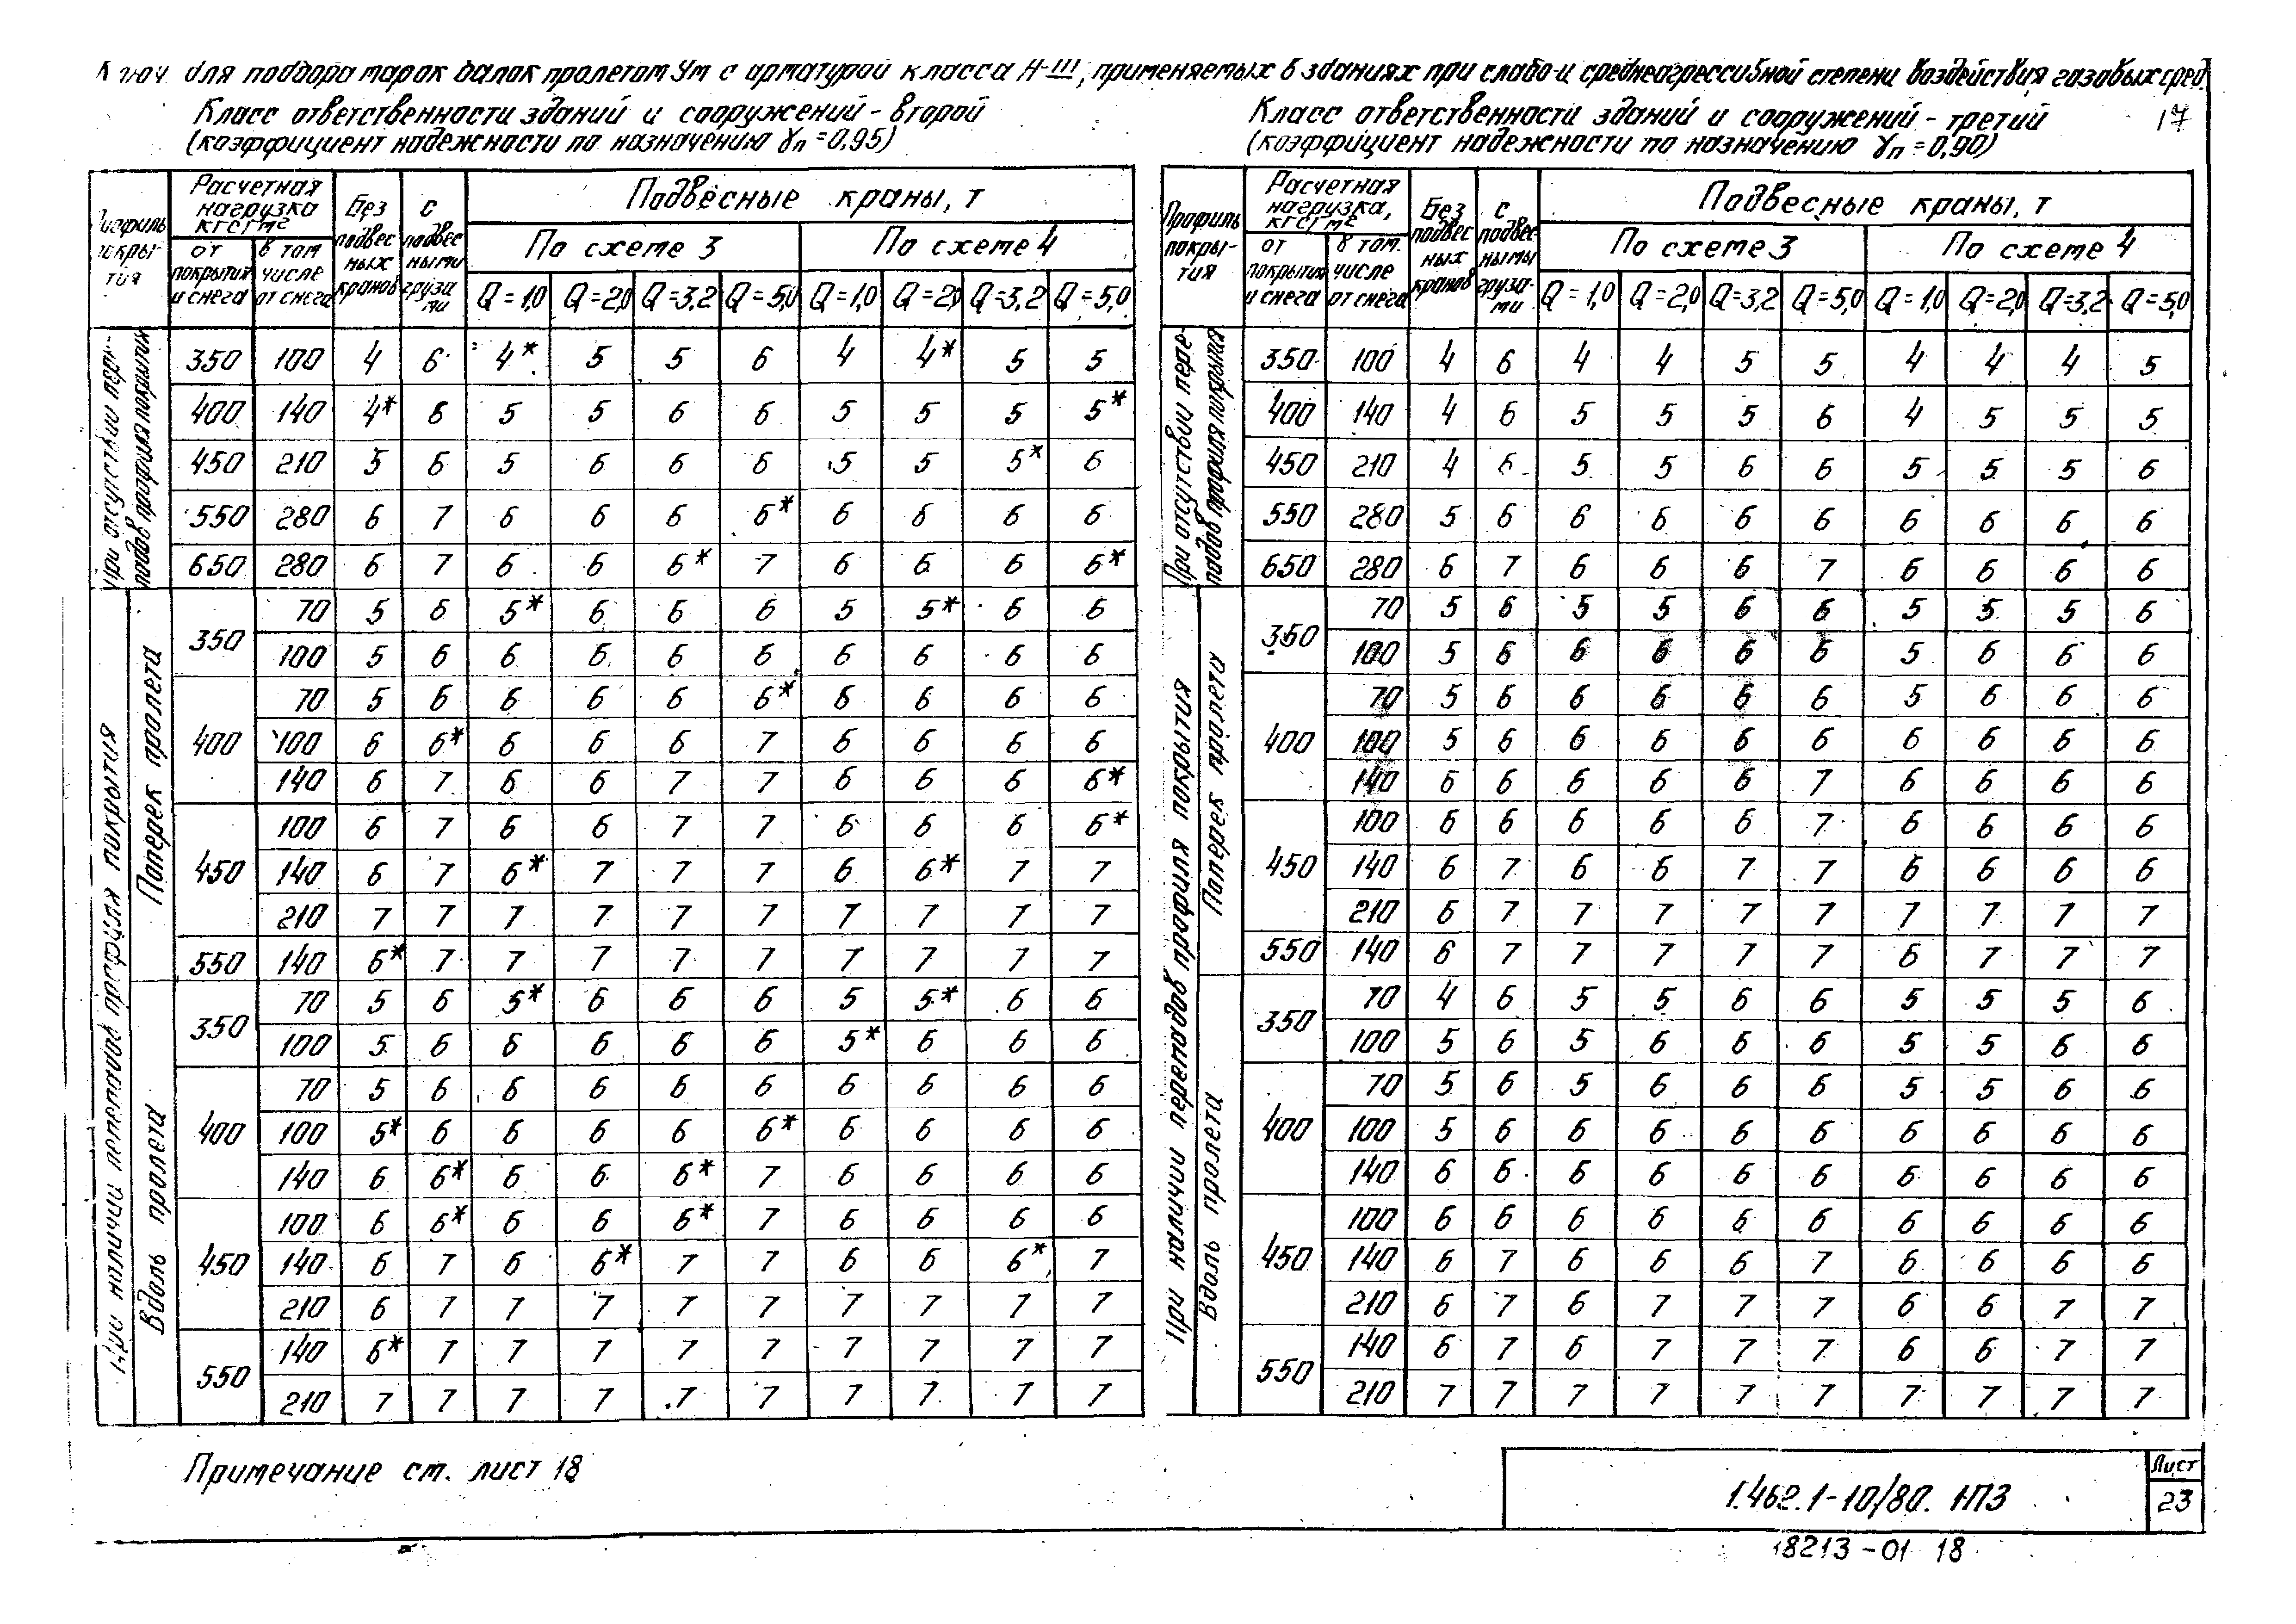 Ключ для подбора марок балок пролетом 9м с арматурой класса А-III, применяемых в зданиях при слабо- и среднеагрессивной степени воздействия газовых сред.
17
Класс ответственности зданий и сооружений - второй
(коэффициент надежности по назначению γп = 0,95)
Профиль покры-тия | Расчетная нагрузка кгс/м2 | Без подвес ных кранов | С подвес ными груза ми | Подвесные краны, т
По схеме 3 | По схеме 4
от покрытия и снега | в том числе от снега | Q = 1,0 | Q = 2,0 | Q = 3,2 | Q = 5,0 | Q = 1,0 | Q = 2,0 | Q = 3,2 | Q = 5,0
При отсутствии пере-падов профиля покрытия
350 100 4 6 4* 5 5 6 4 4* 5 5
400 140 4* 6 5 5 6 6 5 5 5 5*
450 210 5 6 5 6 6 6 5 5 5* 6
550 280 6 7 6 6 6 6* 6 6 6 6
650 280 6 7 6 6 6* 7 6 6 6 6*
При наличии перепадов профиля покрытия
Поперек пролета
350 70 5 6 5* 6 6 6 5 5* 6 6
100 5 6 6 6 6 6 6 6 6 6
400 70 5 6 6 6 6 6* 6 6 6 6
100 6 6* 6 6 6 7 6 6 6 6
140 6 7 6 6 7 7 6 6 6 6*
450 100 6 7 6 6 7 7 6 6 6 6*
140 6 7 6* 7 7 7 6 6* 7 7
210 7 7 7 7 7 7 7 7 7 7
550 140 6* 7 7 7 7 7 7 7 7 7
Вдоль пролета
350 70 5 6 5* 6 6 6 5 5* 6 6
100 5 6 6 6 6 6 5* 6 6 6
400 70 5 6 6 6 6 6 6 6 6 6
100 5* 6 6 6 6 6* 6 6 6 6
140 6 6* 6 6 6* 7 6 6 6 6
450 100 6 6* 6 6 6* 7 6 6 6 6
140 6 7 6 6* 7 7 6 6 6* 7
210 6 7 7 7 7 7 7 7 7 7
550 140 6* 7 7 7 7 7 7 7 7 7
210 7 7 7 7 7 7 7 7 7 7
Класс ответственности зданий и сооружений - третий
(коэффициент надежности по назначению γп = 0,90)
Профиль покры-тия | Расчетная нагрузка, кгс/м2 | Без подвес ных кранов | С подвес ными груза-ми | Подвесные краны, т
По схеме 3 | По схеме 4
от покрытия и снега | в том числе от снега | Q = 1,0 | Q = 2,0 | Q = 3,2 | Q = 5,0 | Q = 1,0 | Q = 2,0 | Q = 3,2 | Q = 5,0
При отсутствии пере-падов профиля покрытия
350 100 4 6 4 4 5 5 4 4 4 5
400 140 4 6 5 5 5 6 4 5 5 5
450 210 4 6 5 5 6 6 5 5 5 6
550 280 5 6 6 6 6 6 6 6 6 6
650 280 6 7 6 6 6 7 6 6 6 6
При наличии перепадов профиля покрытия
Поперек пролета
350 70 5 6 5 5 6 6 5 5 5 6
100 5 6 6 6 6 6 5 6 6 6
400 70 5 6 6 6 6 6 5 6 6 6
100 5 6 6 6 6 6 6 6 6 6
140 6 6 6 6 6 7 6 6 6 6
450 100 6 6 6 6 6 7 6 6 6 6
140 6 7 6 6 7 7 6 6 6 6
210 6 7 7 7 7 7 7 7 7 7
550 140 6 7 7 7 7 7 6 7 7 7
Вдоль пролета
350 70 4 6 5 5 6 6 5 5 5 6
100 5 6 5 6 6 6 5 5 6 6
400 70 5 6 5 6 6 6 5 5 6 6
100 5 6 6 6 6 6 6 6 6 6
140 6 6 6 6 6 6 6 6 6 6
450 100 6 6 6 6 6 6 6 6 6 6
140 6 7 6 6 6 7 6 6 6 6
210 6 7 6 7 7 7 6 6 7 7
550 140 6 7 6 7 7 7 6 6 7 7
210 7 7 7 7 7 7 7 7 7 7
Примечание см. лист 18
1.462.1-10/80. 1-ПЗ
Лист
23
18213-01 18